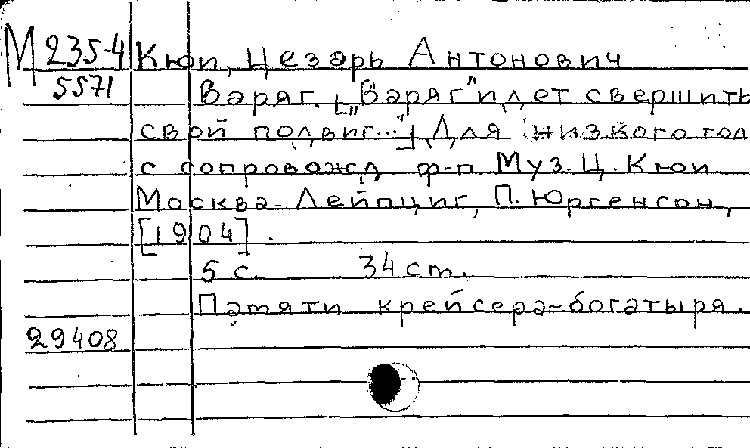 М 235-4 Кюи, Цезарь Антонович
5571
Варяг. [„Варяг" идет свершить
свой подвиг..."] Для низкого гол.
с сопровожд. ф-п. Муз. Ц. Кюи
Москва-Лейпциг, П. Юргенсон,
[1904].
5 с. 34 cm.
Памяти крейсера-богатыря.
29408